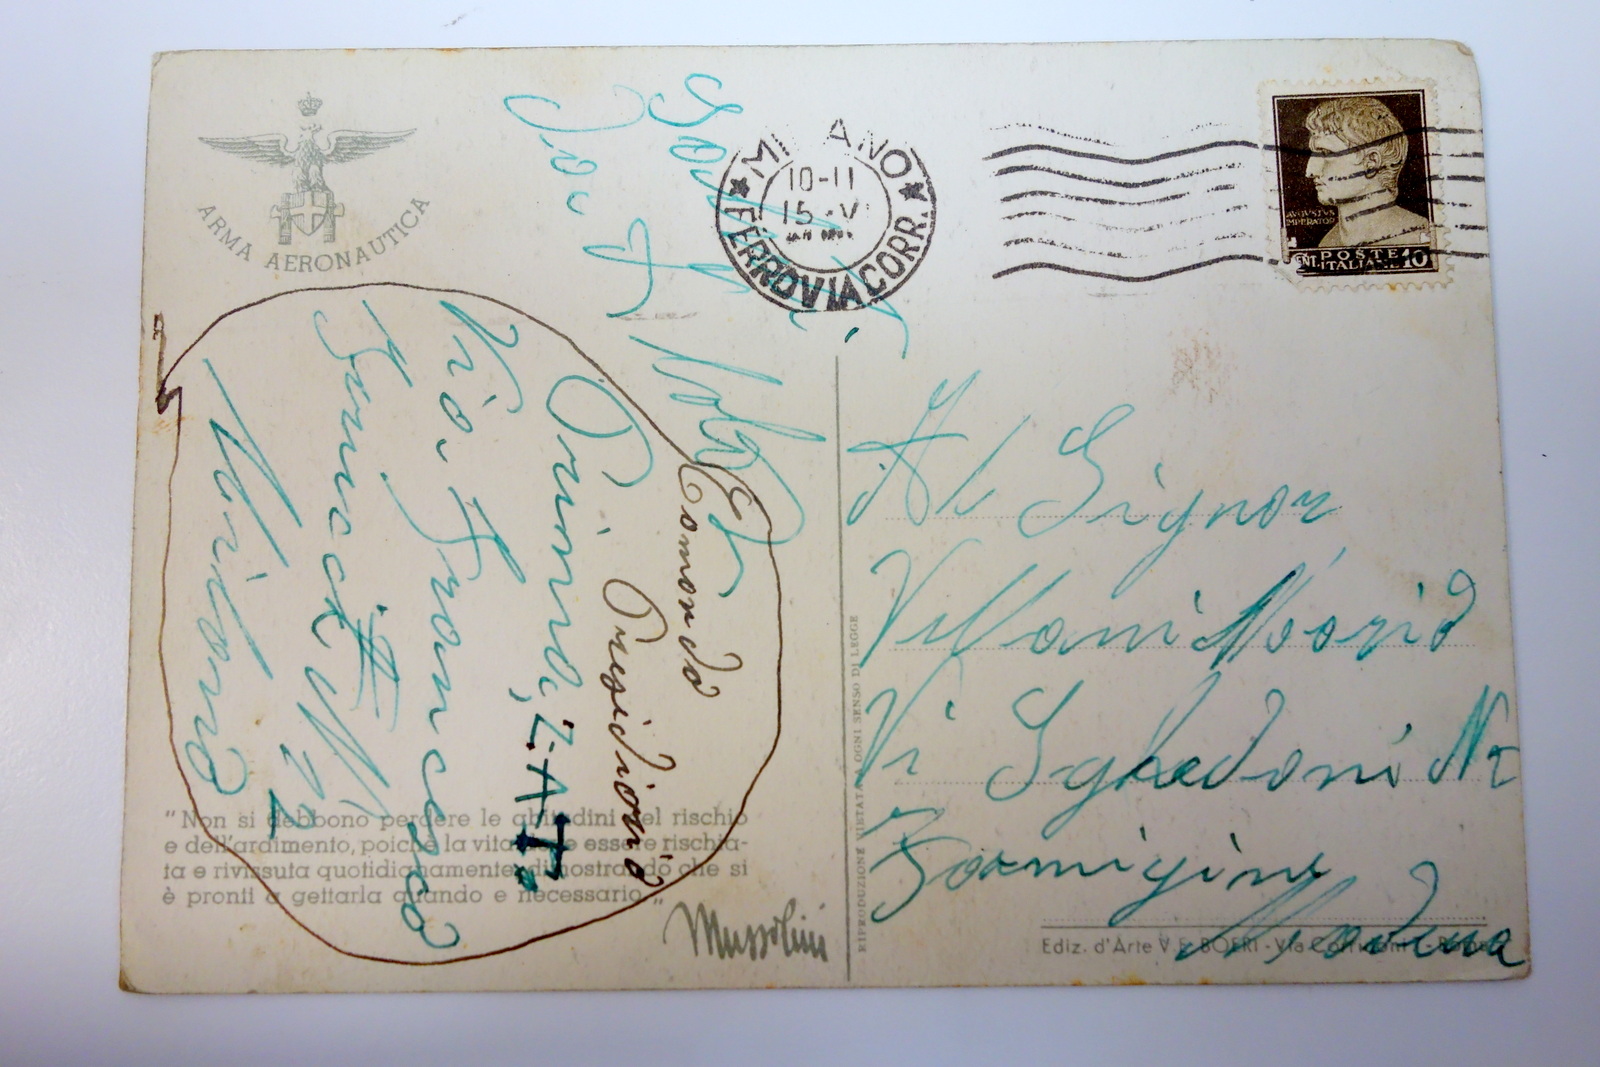 ARMA AERONAUTICA
MILANO
10-11
15-V
FERROVIA CORR.
AVGVSTVS
IMPERATOR
CENT. POSTE 10
ITALIANE
Comando
Presidiario
Prima Z.A.T.
Via Francesco
N 22
Milano
Al Signor
Villani
Vi Sghedoni N
Formigine
Modena
"Non si debbono perdere le abitudini del rischio
e dell'ardimento, poiché la vita deve essere rischia-
ta e rivissuta quotidianamente, dimostrando che si
è pronti a gettarla quando e necessario."
Mussolini
RIPRODUZIONE VIETATA A OGNI SENSO DI LEGGE
Ediz. d'Arte V. E. BOERI - Via - Roma